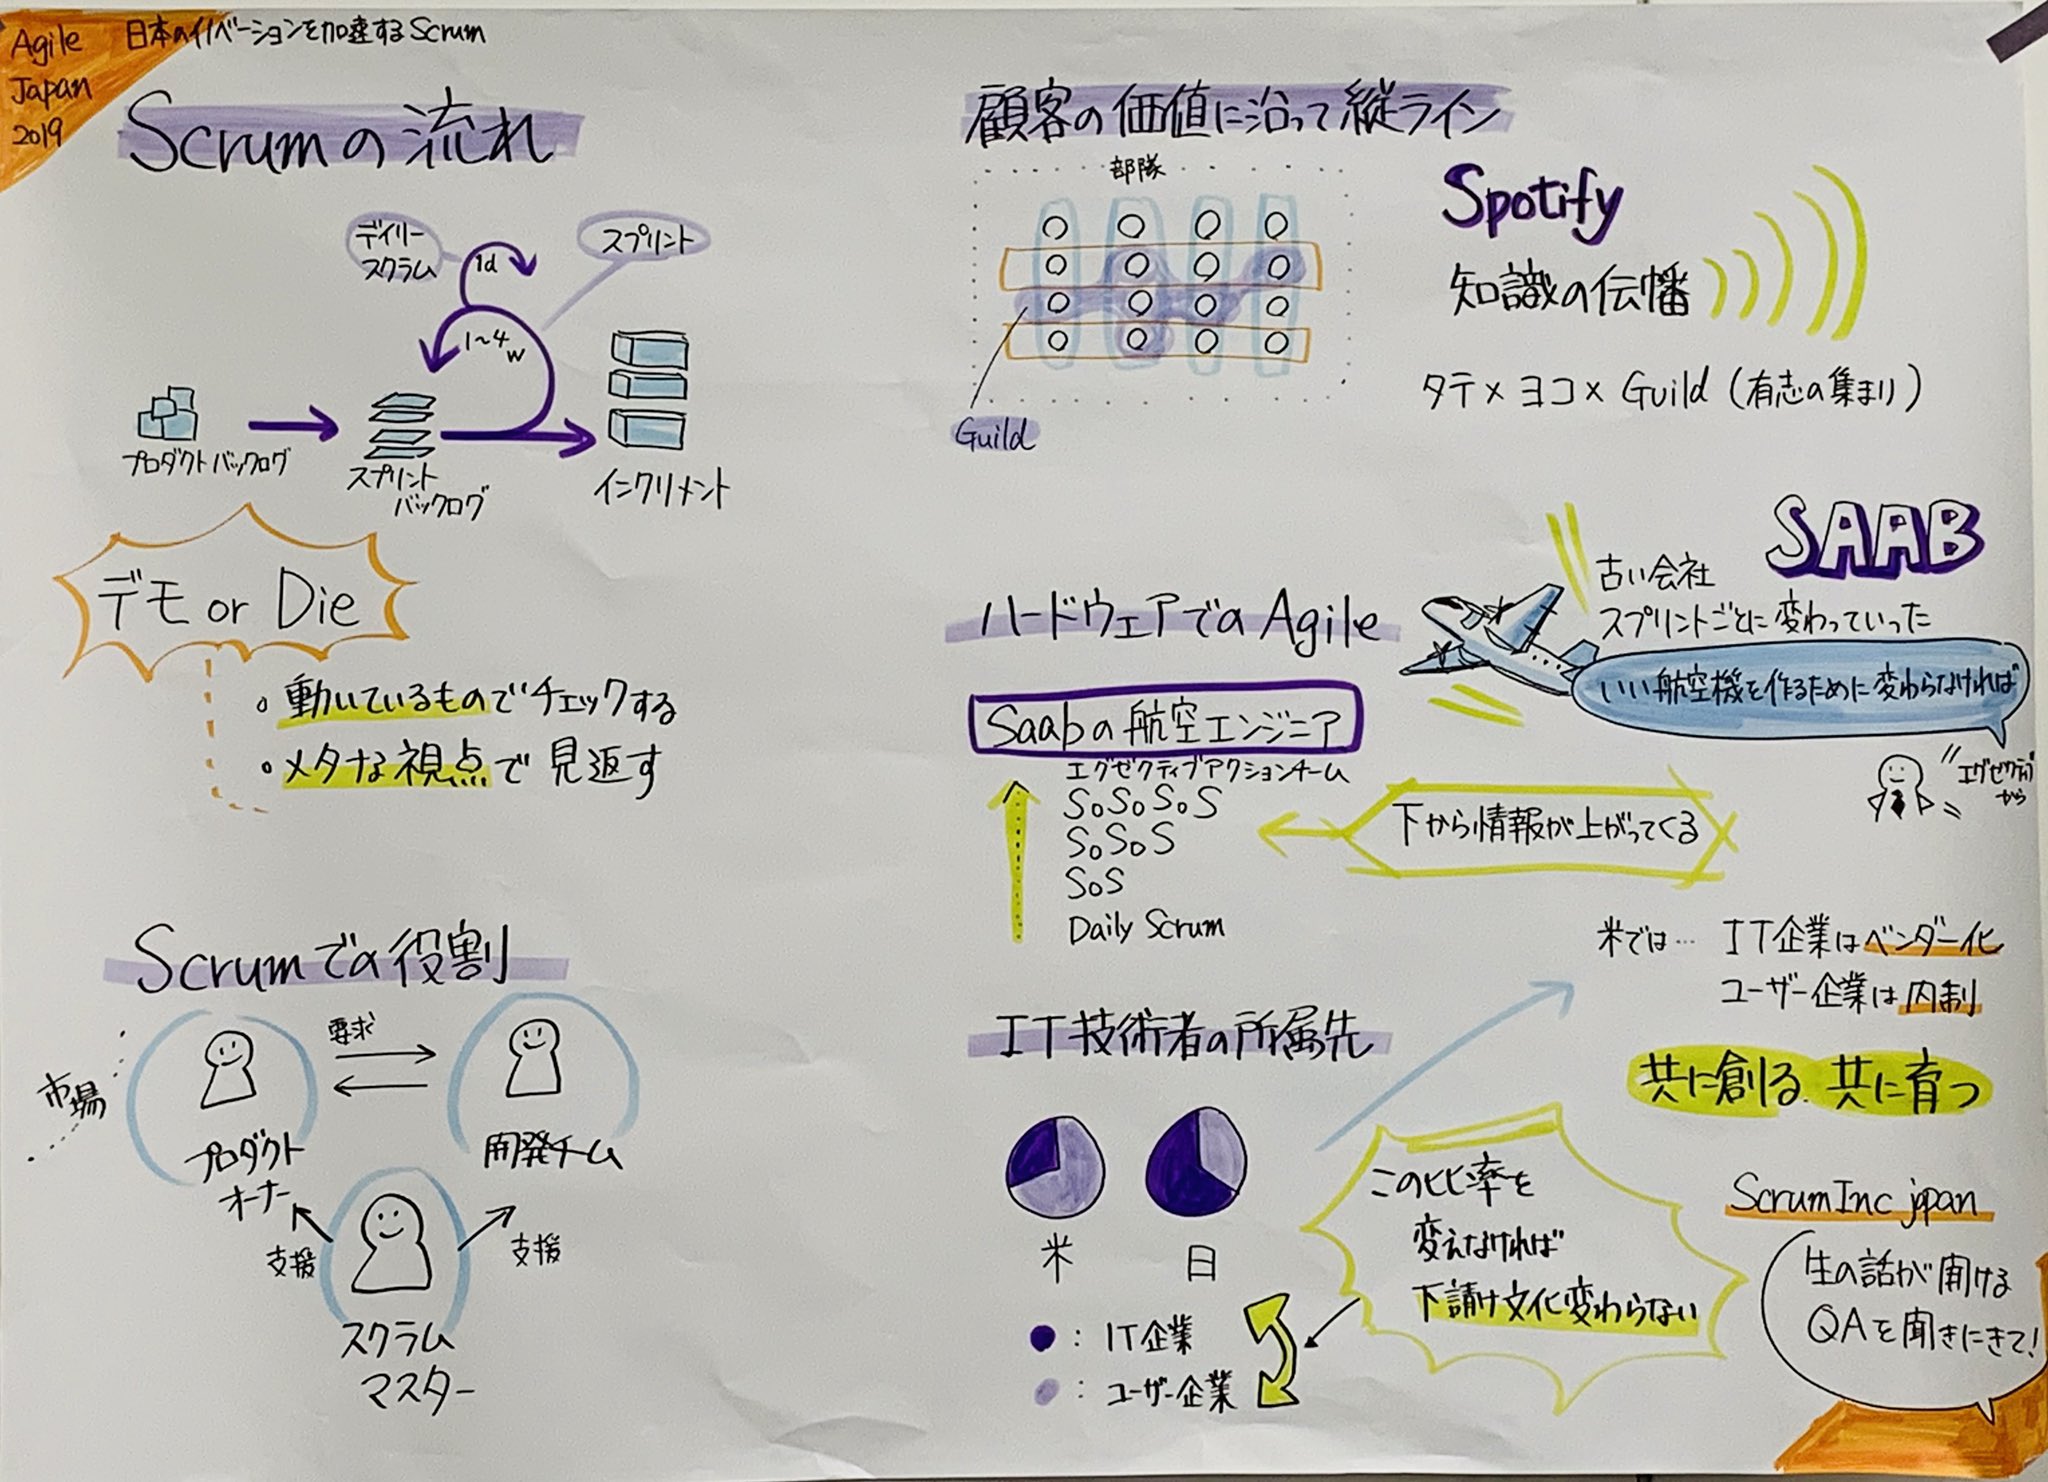 Agile
Japan
2019
日本のイノベーションを加速するScrum
Scrumの流れ
デイリー
スクラム
1d
スプリント
1~4w
プロダクトバックログ
スプリント
バックログ
インクリメント
デモ or Die
・動いているものでチェックする
・メタな視点で見返す
Scrumでの役割
市場
要求
プロダクト
オーナー
開発チーム
支援
支援
スクラム
マスター
顧客の価値に沿って縦ライン
部隊
Guild
Spotify
知識の伝播
タテ×ヨコ×Guild(有志の集まり)
ハードウェアでのAgile
SAAB
古い会社
スプリントごとに変わっていった
いい航空機を作るために変わらなければ
エグゼクティブ
から
Saabの航空エンジニア
エグゼクティブアクションチーム
SoSoSoS
SoSoS
SoS
Daily Scrum
下から情報が上がってくる
IT技術者の所属先
米では… IT企業はベンダー化
ユーザー企業は内制
共に創る.共に育つ
米
日
: IT企業
: ユーザー企業
この比率を
変えなければ
下請け文化変わらない
ScrumInc japan
生の話が聞ける
QAを聞きにきて!